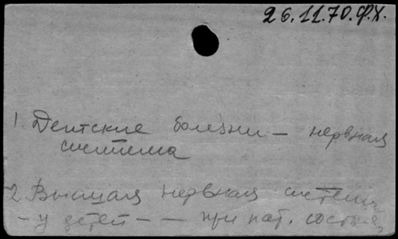 26.11.70.Ф.Х.
1. Детские болезни – нервная
система
2. Высшая нервная система
- у детей - - при пат. состоя,